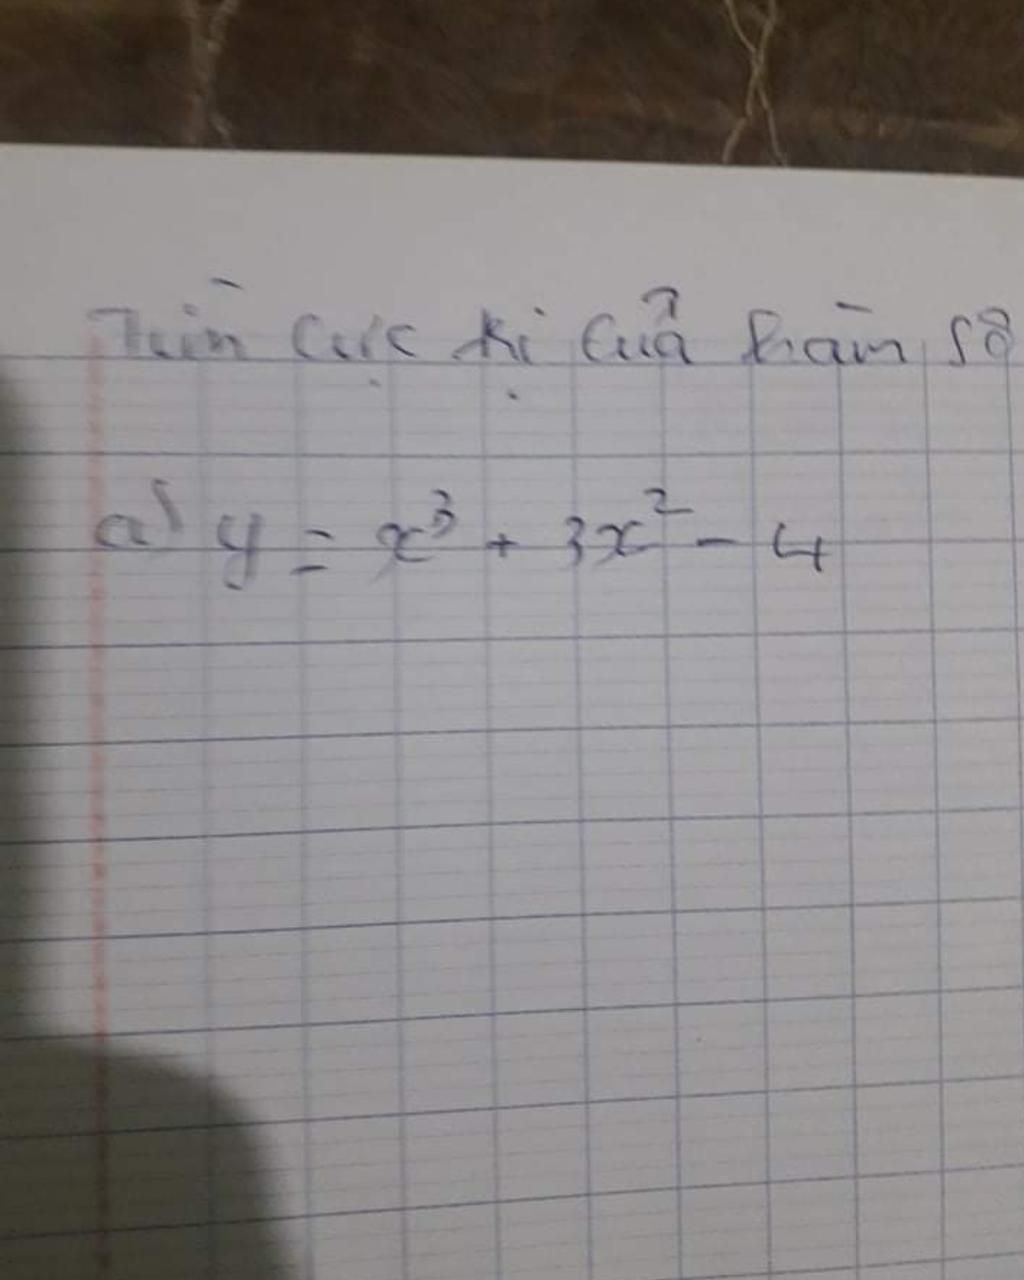 Tìm cực trị của hàm số
a) y = x³ + 3x² - 4